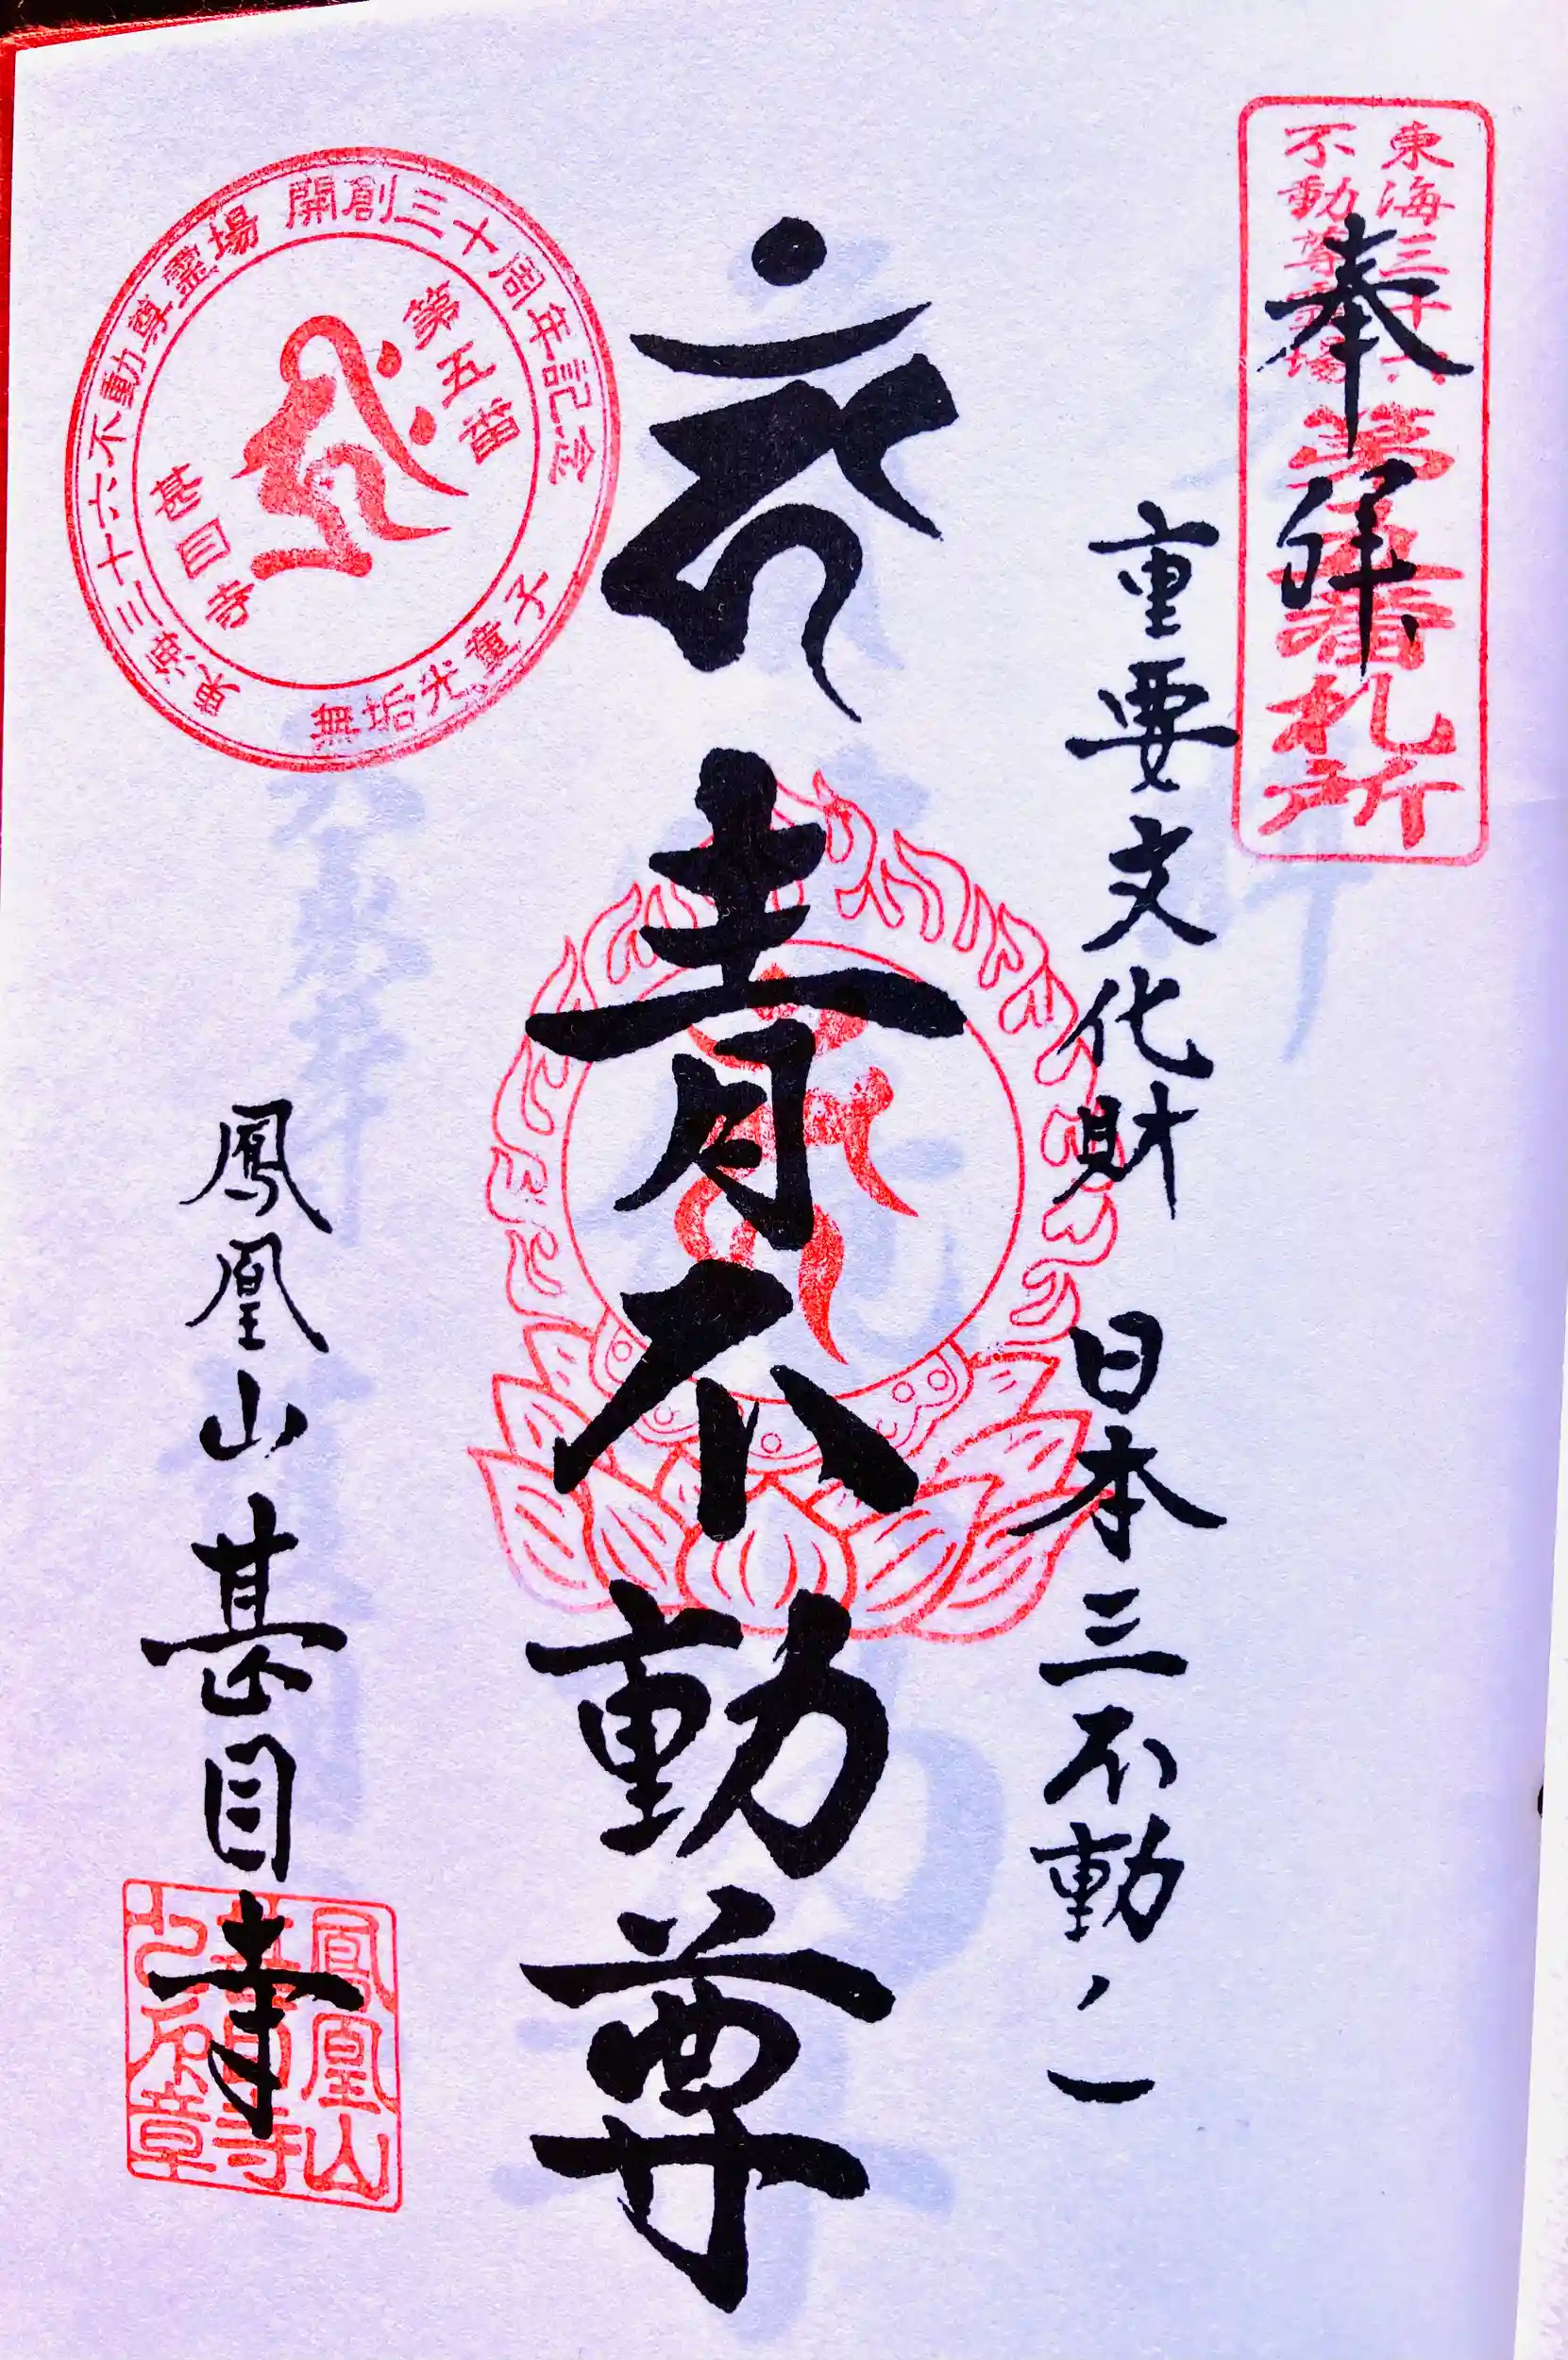 東海三十六
不動尊霊場
第五番札所
奉拝
重要文化財 日本三不動ノ一
青不動尊
鳳凰山甚目寺
東海三十六不動尊霊場 開創三十周年記念
無垢光童子
第五番
甚目寺
鳳凰山
甚目寺